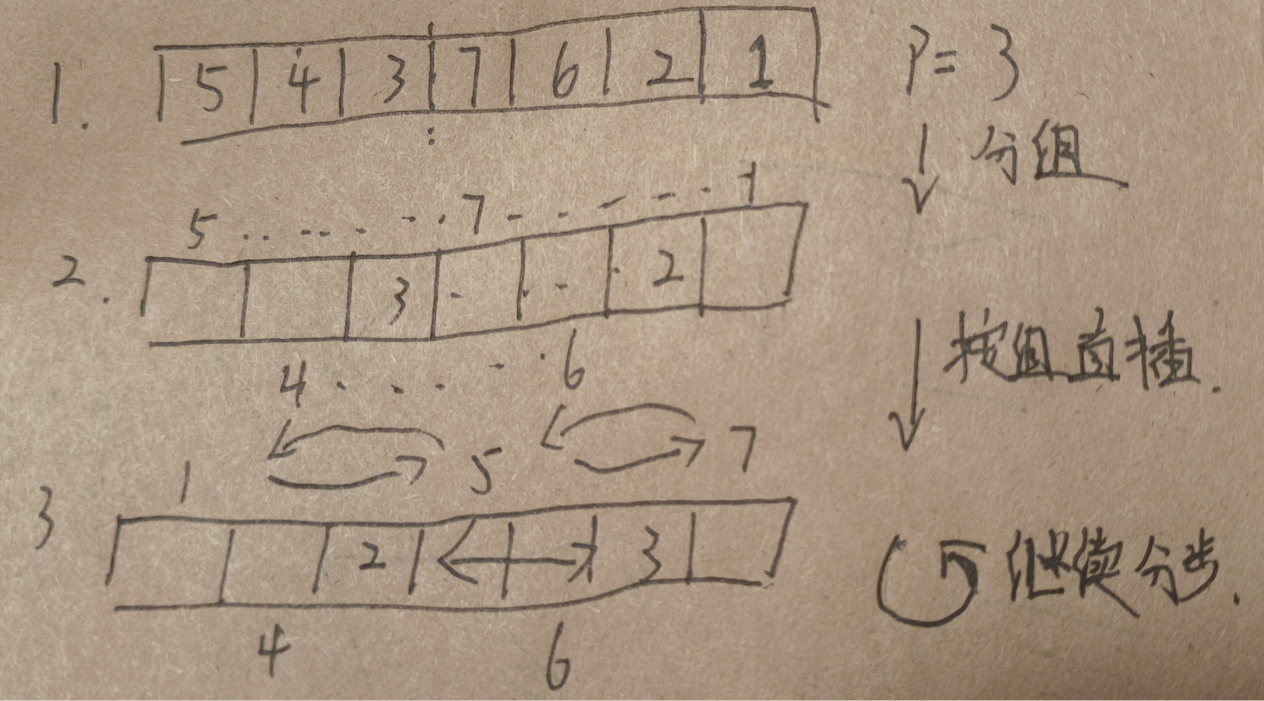 1. 5 4 3 7 6 2 1 P=3
↓ 分组
5 7 1
2. 3 2
4 6
↓ 按组直插.
1 5 7
3 2 3
4 6
继续分步.